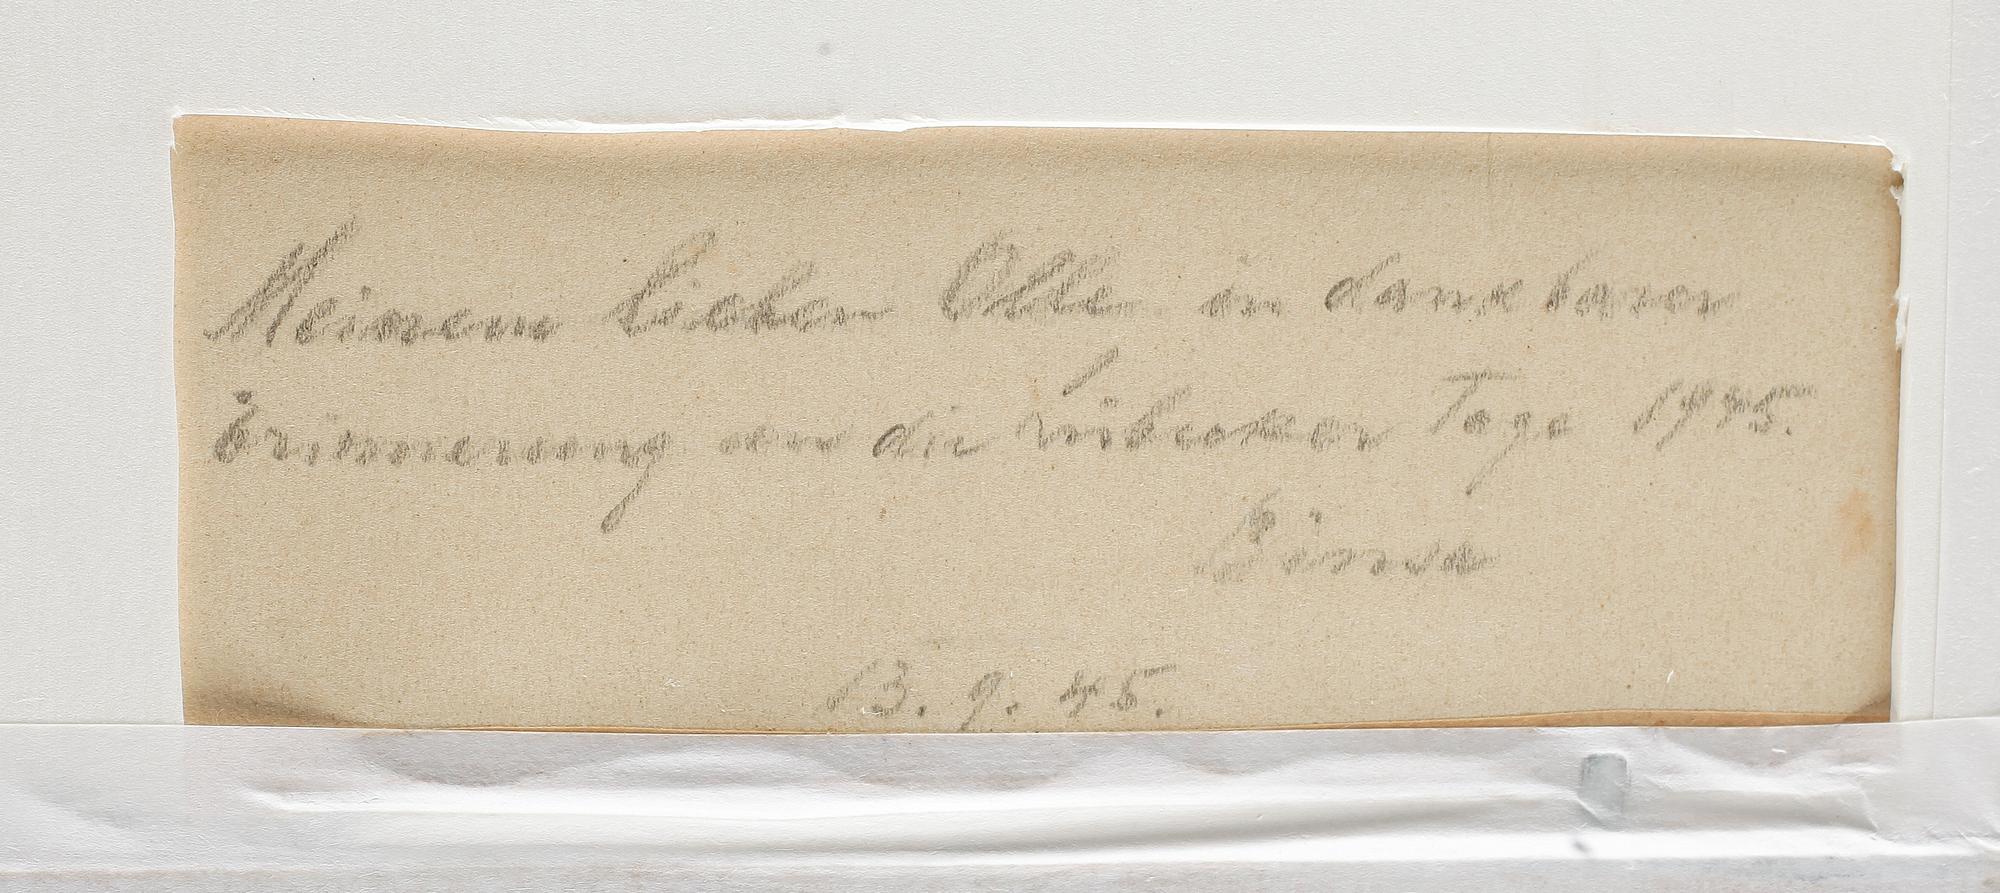 Meinem lieben Olle in dankbarer
Erinnerung an die Tage 1945.
13. 9. 45.